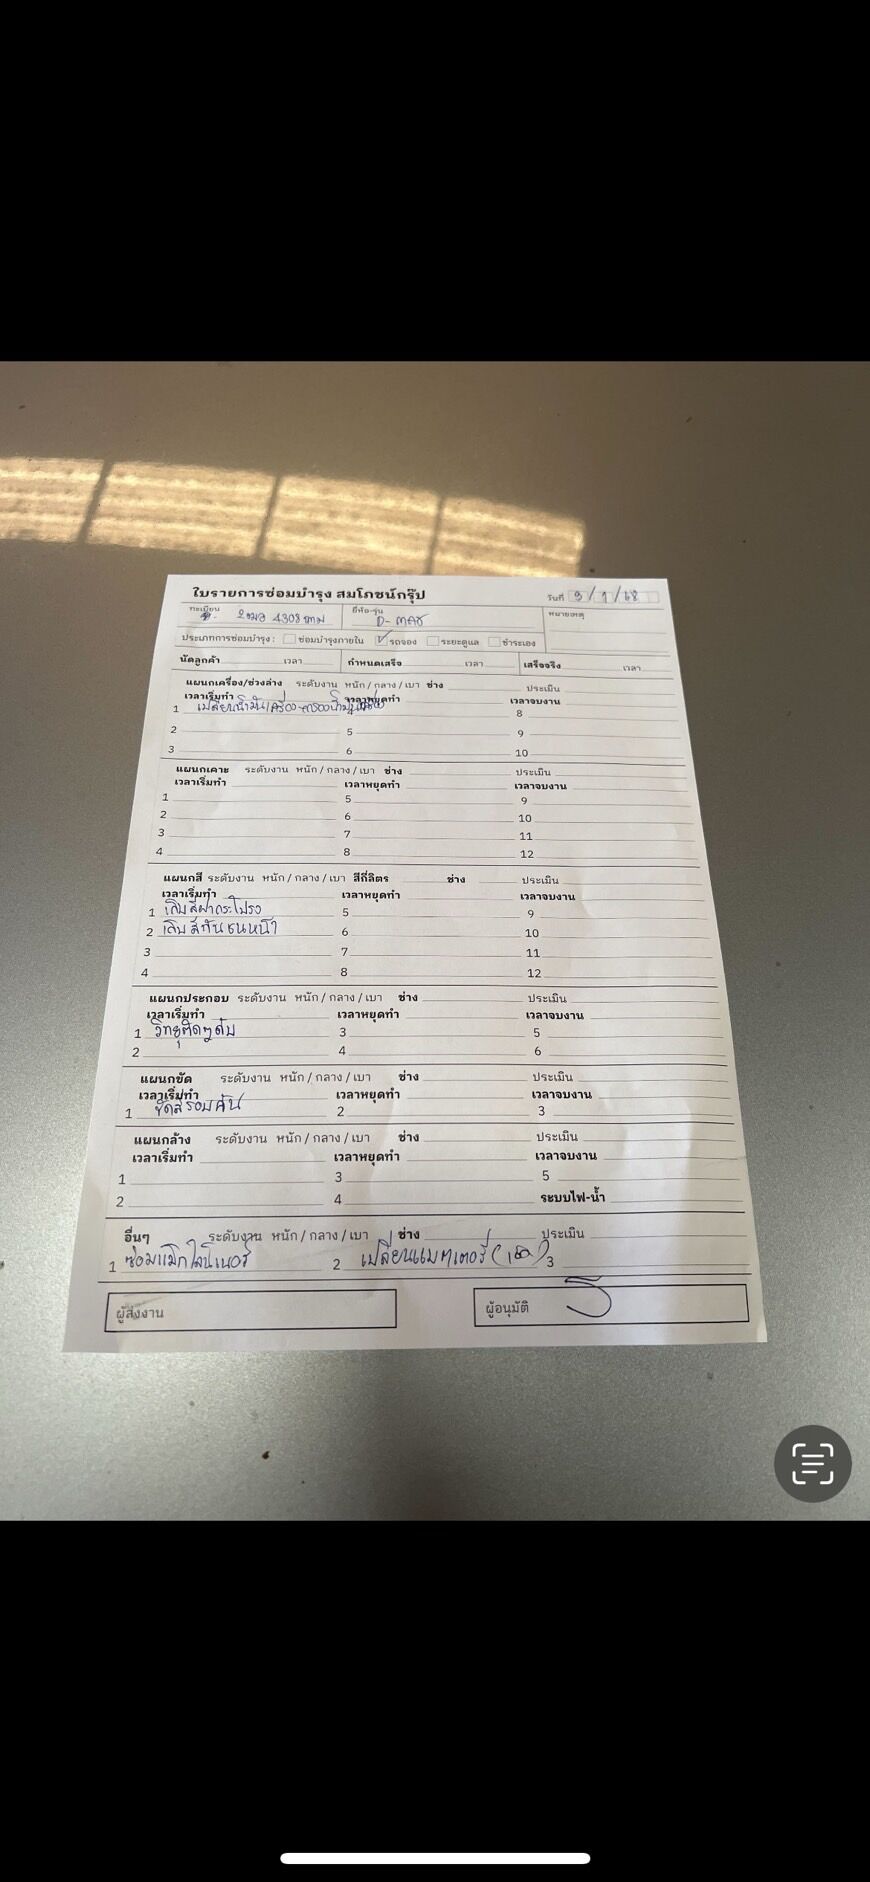 ใบรายการซ่อมบำรุง สมโภชน์กรุ๊ป
วันที่ 9/1/68
ทะเบียน 4308 กทม ยี่ห้อ-รุ่น D-MAX หมายเหตุ
ประเภทการซ่อมบำรุง : ซ่อมบำรุงภายใน รถจอง ระยะดูแล ชำระเอง
นัดลูกค้า เวลา กำหนดเสร็จ เวลา เสร็จจริง เวลา
แผนกเครื่อง/ช่วงล่าง ระดับงาน หนัก / กลาง / เบา ช่าง ประเมิน
เวลาเริ่มทำ เวลาหยุดทำ เวลาจบงาน
1 เปลี่ยนน้ำมันเครื่อง-กรองน้ำมันเครื่อง 4 8
2 5 9
3 6 10
แผนกเคาะ ระดับงาน หนัก / กลาง / เบา ช่าง ประเมิน
เวลาเริ่มทำ เวลาหยุดทำ เวลาจบงาน
1 5 9
2 6 10
3 7 11
4 8 12
แผนกสี ระดับงาน หนัก / กลาง / เบา สีกี่ลิตร ช่าง ประเมิน
เวลาเริ่มทำ เวลาหยุดทำ เวลาจบงาน
1 เก็บสีฝากระโปรง 5 9
2 เก็บสีกันชนหน้า 6 10
3 7 11
4 8 12
แผนกประกอบ ระดับงาน หนัก / กลาง / เบา ช่าง ประเมิน
เวลาเริ่มทำ เวลาหยุดทำ เวลาจบงาน
1 วิทยุติดๆดับ 3 5
2 4 6
แผนกขัด ระดับงาน หนัก / กลาง / เบา ช่าง ประเมิน
เวลาเริ่มทำ เวลาหยุดทำ เวลาจบงาน
1 ขัดสีรอบคัน 2 3
แผนกล้าง ระดับงาน หนัก / กลาง / เบา ช่าง ประเมิน
เวลาเริ่มทำ เวลาหยุดทำ เวลาจบงาน
1 3 5
2 4 ระบบไฟ-น้ำ
อื่นๆ ระดับงาน หนัก / กลาง / เบา ช่าง ประเมิน
1 ซ่อมแม็กไลน์เนอร์ 2 เปลี่ยนแบตเตอรี่ 3
ผู้สั่งงาน ผู้อนุมัติ